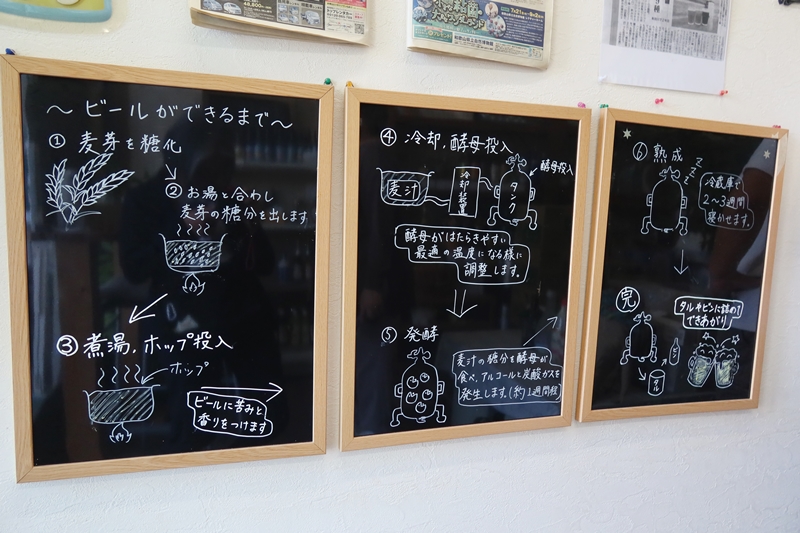 ～ビールができるまで～
① 麦芽を糖化
② お湯と合わし
麦芽の糖分を出します
③ 煮湯，ホップ投入
ホップ
ビールに苦みと
香りをつけます
④ 冷却，酵母投入
麦汁
冷却装置
タンク
酵母投入
酵母がはたらきやすい
最適の温度になる様に
調整します。
⑤ 発酵
麦汁の糖分を酵母が
食べ，アルコールと炭酸ガスを
発生します。(約1週間程)
⑥ 熟成
zzzz
冷蔵庫で
2〜3週間
寝かせます。
完
タルやビンに詰めて
できあがり
タル